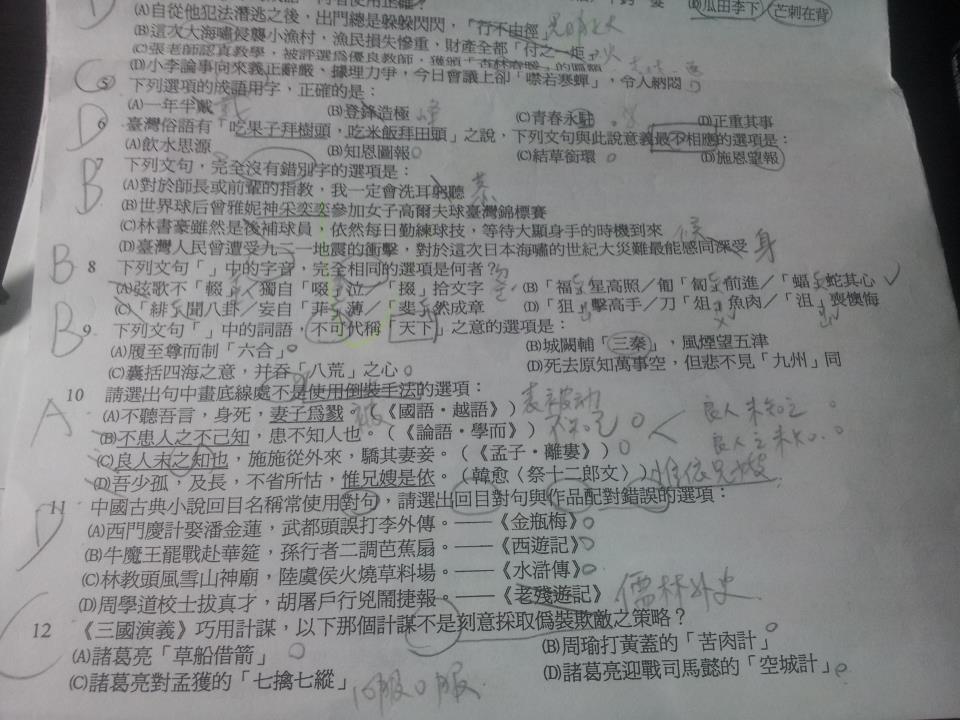 (D)瓜田李下 芒刺在背
(A)自從他犯法潛逃之後,出門總是躲躲閃閃,「行不由徑
(B)這次大海嘯侵襲小漁村,漁民損失慘重,財產全都「付之一炬」 火
(C)張老師認真教學,被評選為優良教師,獲頒「杏林春暖」的匾額
(D)小李論事向來義正辭嚴、據理力爭,今日會議上卻「噤若寒蟬」,令人納悶
C 5 下列選項的成語用字,正確的是:
(A)一年半載 (B)登鋒造極 峰 (C)青春永駐 (D)正重其事
D 6 臺灣俗語有「吃果子拜樹頭,吃米飯拜田頭」之說,下列文句與此說意義最不相應的選項是:
(A)飲水思源 (B)知恩圖報 (C)結草銜環 (D)施恩望報
B 7 下列文句,完全沒有錯別字的選項是:
(A)對於師長或前輩的指教,我一定會洗耳躬聽 恭
(B)世界球后曾雅妮神采奕奕參加女子高爾夫球臺灣錦標賽
(C)林書豪雖然是後補球員,依然每日勤練球技,等待大顯身手的時機到來 候
(D)臺灣人民曾遭受九二一地震的衝擊,對於這次日本海嘯的世紀大災難最能感同深受 身
B 8 下列文句「 」中的字音,完全相同的選項是何者?
(A)弦歌不「輟」/獨自「啜」泣/「掇」拾文字 (B)「福」星高照/匍「匐」前進/「蝠」蛇其心
(C)「緋」聞八卦/妄自「菲」薄/「斐」然成章 (D)「狙」擊高手/刀「俎」魚肉/「沮」喪懊悔
B 9 下列文句「 」中的詞語,不可代稱「天下」之意的選項是:
(A)履至尊而制「六合」 (B)城闕輔「三秦」,風煙望五津
(C)囊括四海之意,并吞「八荒」之心 (D)死去原知萬事空,但悲不見「九州」同
A 10 請選出句中畫底線處不是使用倒裝手法的選項:
(A)不聽吾言,身死,妻子為戮。《國語‧越語》) 表被動
(B)不患人之不己知,患不知人也。(《論語‧學而》) 不知己
(C)良人未之知也,施施從外來,驕其妻妾。(《孟子‧離婁》) 良人未知之
(D)吾少孤,及長,不省所怙,惟兄嫂是依。(韓愈〈祭十二郎文〉) 惟依兄嫂
D 11 中國古典小說回目名稱常使用對句,請選出回目對句與作品配對錯誤的選項:
(A)西門慶計娶潘金蓮,武都頭誤打李外傳。——《金瓶梅》
(B)牛魔王罷戰赴華筵,孫行者二調芭蕉扇。——《西遊記》
(C)林教頭風雪山神廟,陸虞侯火燒草料場。——《水滸傳》
(D)周學道校士拔真才,胡屠戶行兇鬧捷報。——《老殘遊記》 儒林外史
C 12 《三國演義》巧用計謀,以下那個計謀不是刻意採取偽裝欺敵之策略?
(A)諸葛亮「草船借箭」 (B)周瑜打黃蓋的「苦肉計」
(C)諸葛亮對孟獲的「七擒七縱」 (D)諸葛亮迎戰司馬懿的「空城計」